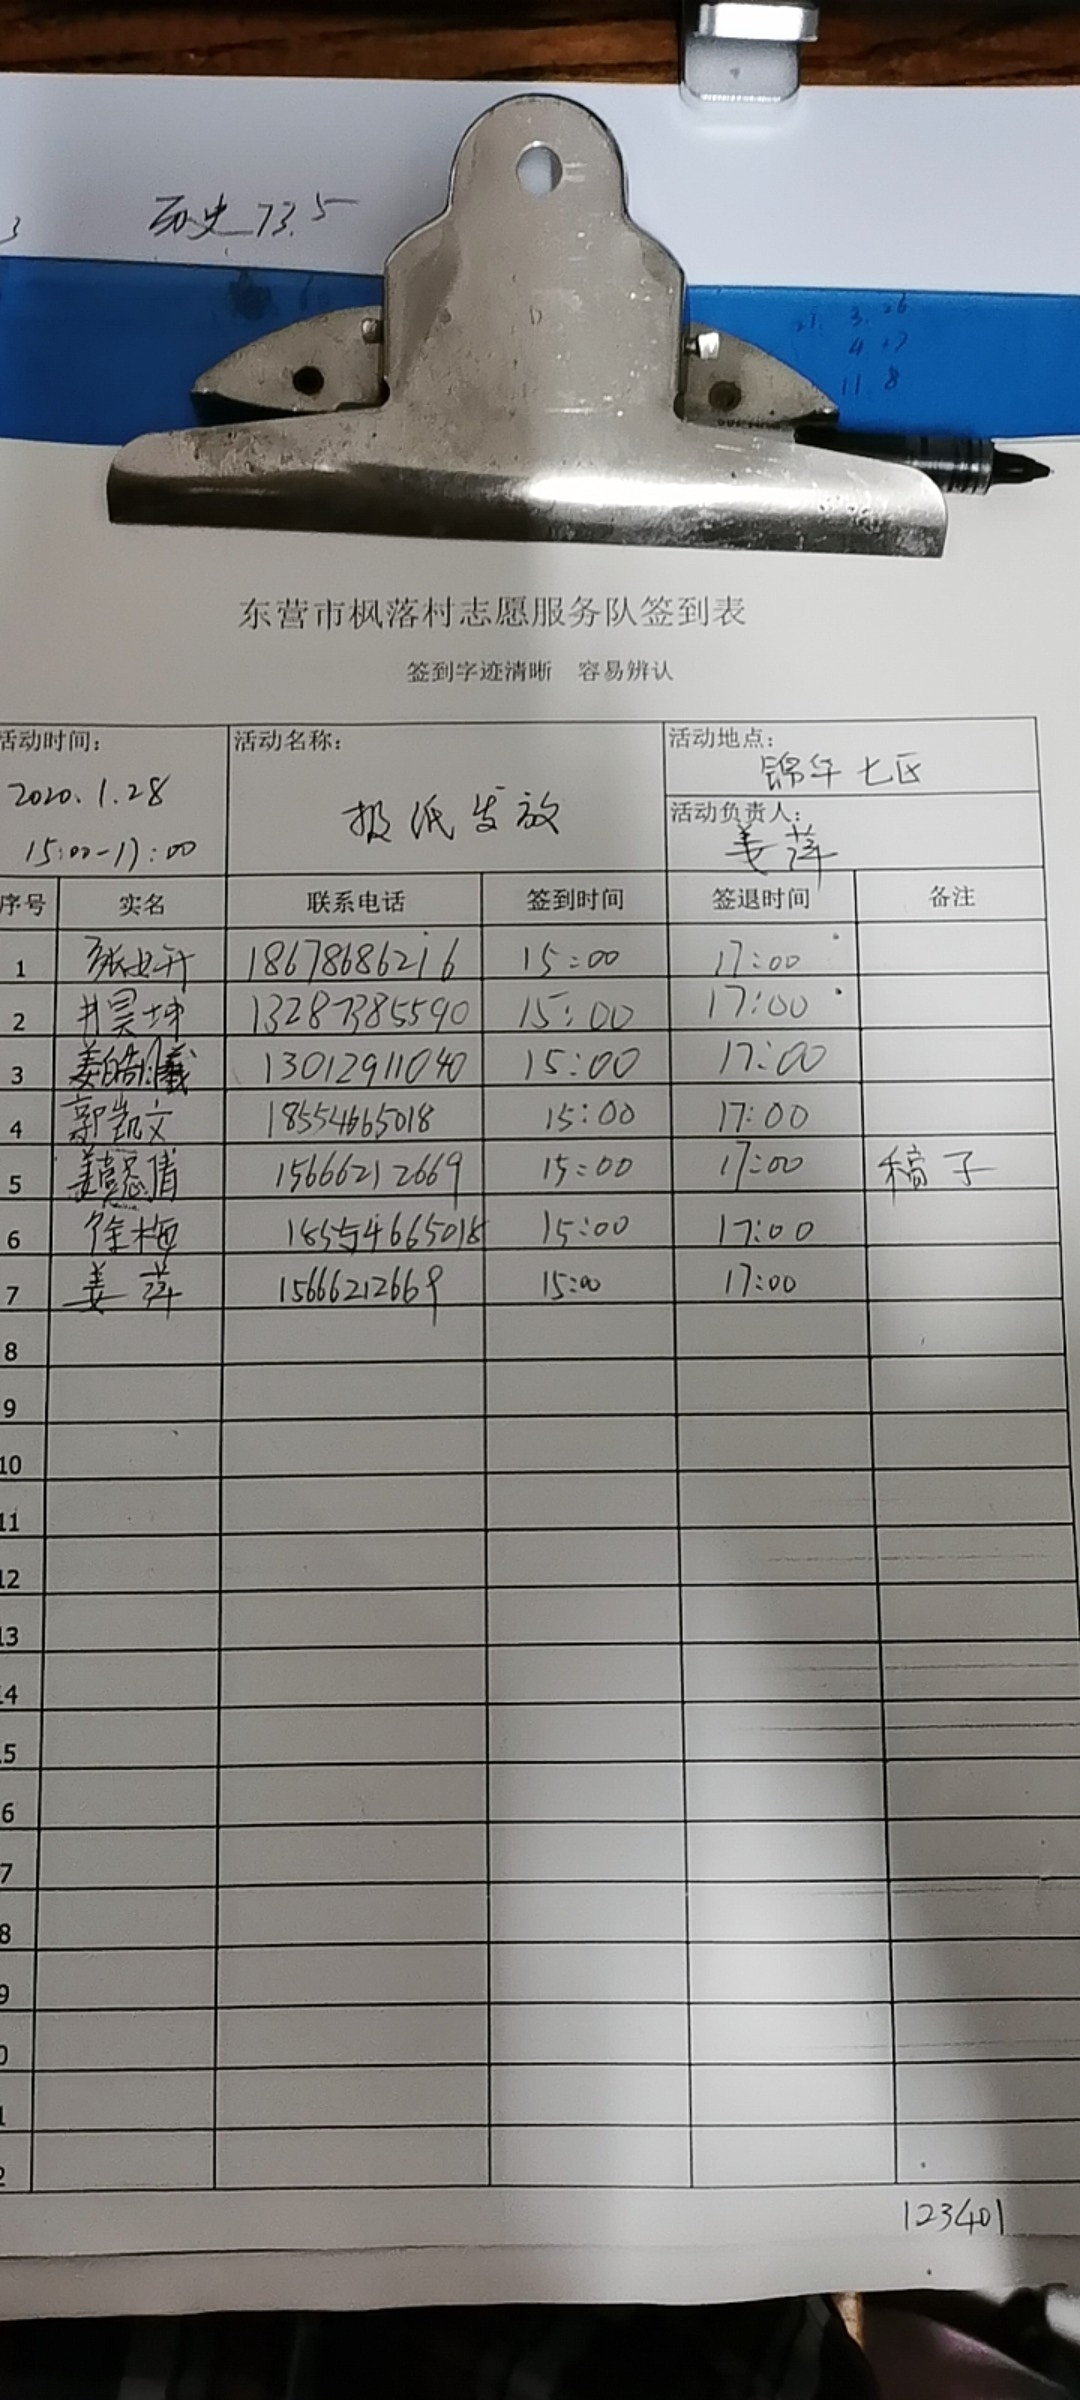 3
历史 73.5
21. 3. 26
4 17
11 8
东营市枫落村志愿服务队签到表
签到字迹清晰 容易辨认
活动时间:
2020.1.28
15:00-17:00
活动名称:
报纸发放
活动地点:
锦华七区
活动负责人:
姜萍
序号 实名 联系电话 签到时间 签退时间 备注
1 18678686216 15:00 17:00
2 井昊坤 13287385590 15:00 17:00
3 姜皓曦 13012911040 15:00 17:00
4 郭凯文 18554665018 15:00 17:00
5 15666212669 15:00 17:00 稿子
6 徐梅 18554665018 15:00 17:00
7 姜萍 15666212669 15:00 17:00
8
9
10
11
12
13
14
5
6
7
8
9
0
1
2
123401